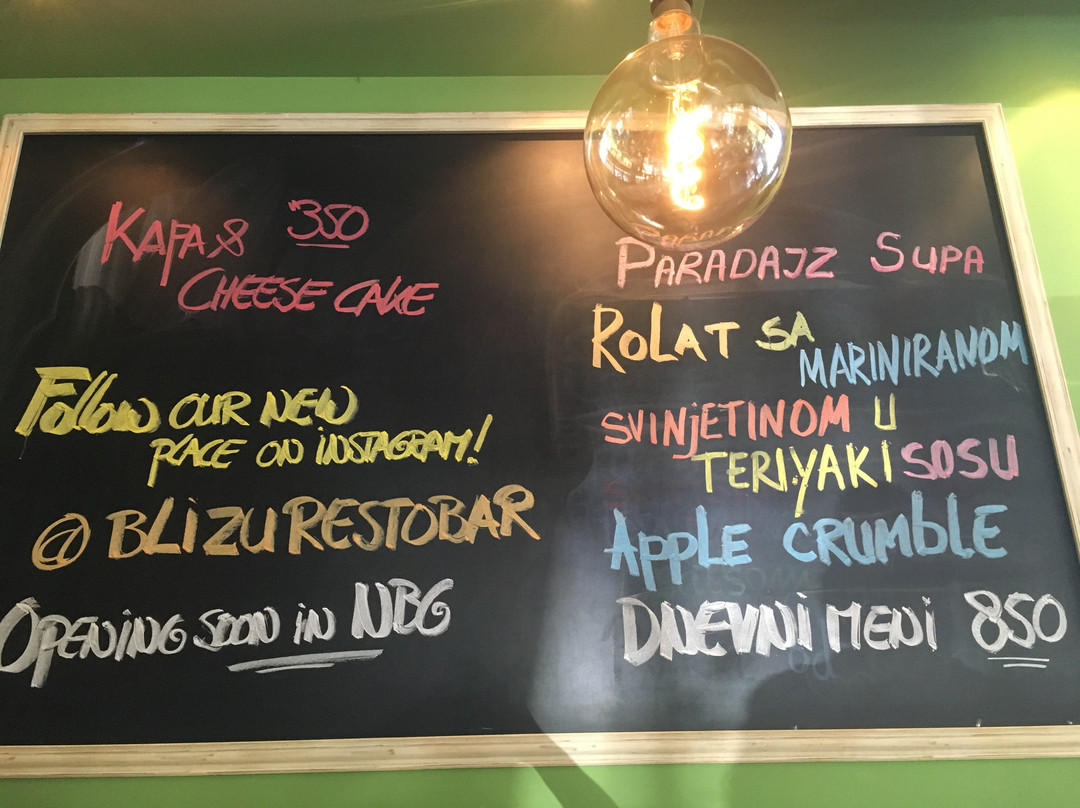 KAFA & 350
CHEESE CAKE
Follow OUR NEW
PLACE ON INSTAGRAM!
@BLIZURESTOBAR
OPENING SOON IN NBG
PARADAJZ SUPA
ROLAT SA
MARINIRANOM
SVINJETINOM U
TERIYAKI SOSU
APPLE CRUMBLE
DNEVNI MENI 850